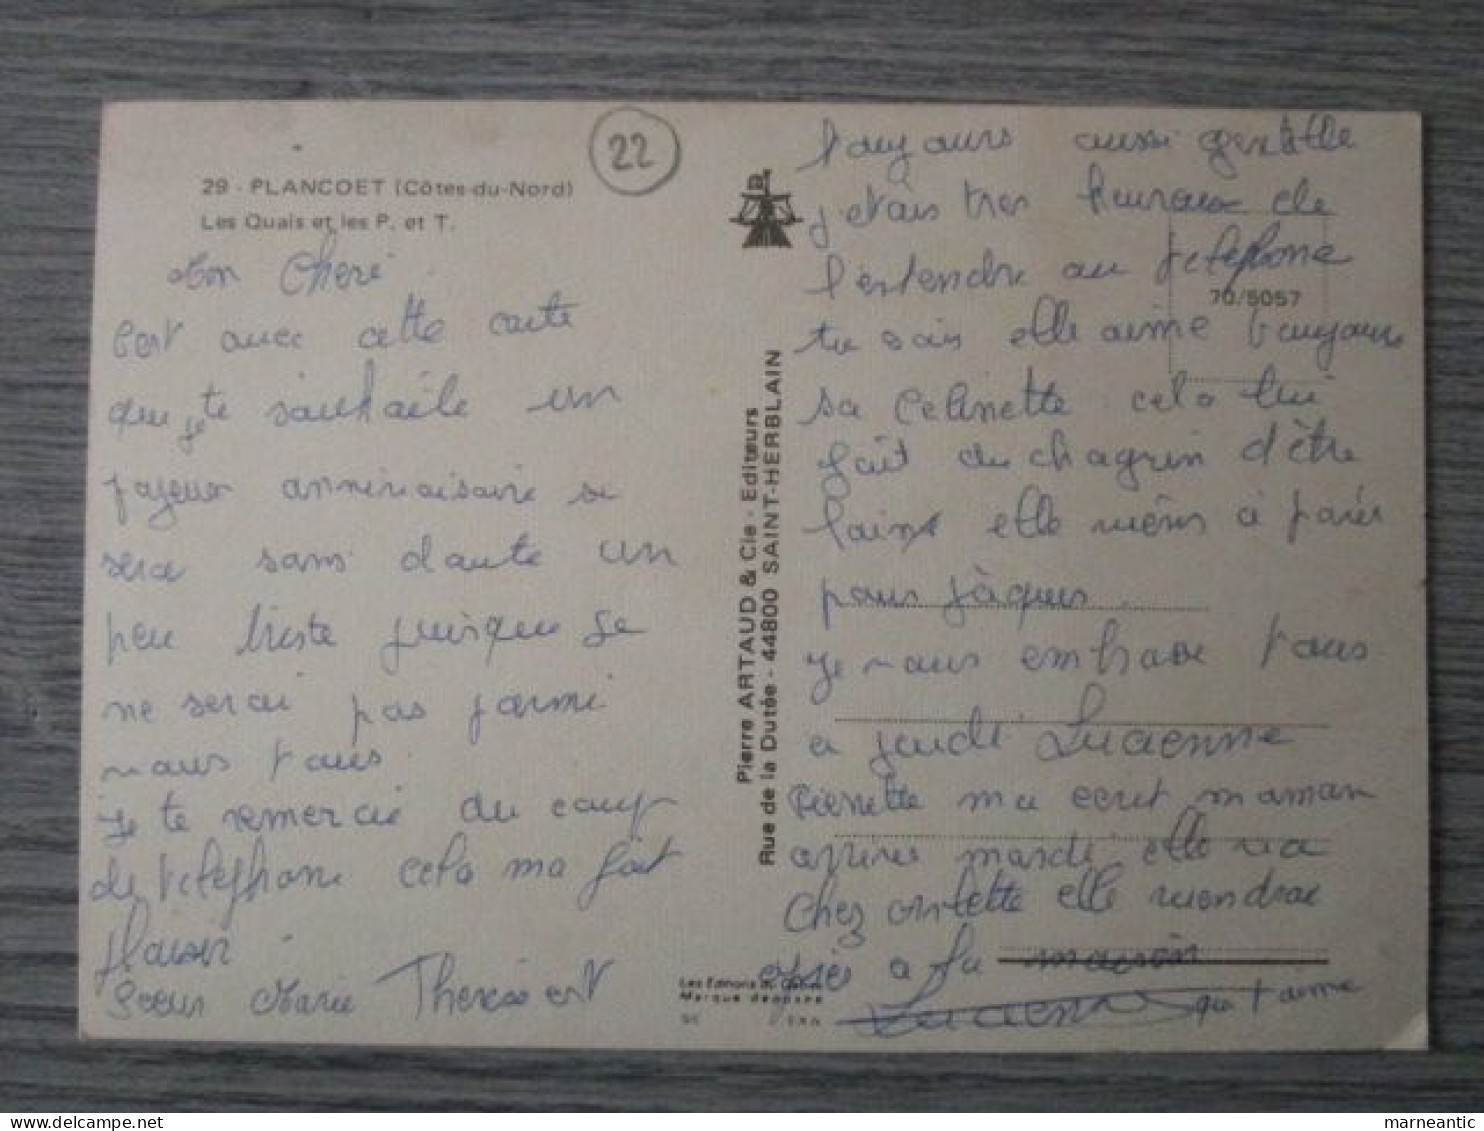 22
29 - PLANCOET (Côtes-du-Nord)
Les Quais et les P. et T.
Mon Cheri
C'est avec cette carte
que je te souhaite un
joyeux anniversaire se
sera sans doute un
peu triste puisque je
ne serai pas parmi
vous tous
Je te remercie du coup
de telephone cela ma fait
plaisir.
Soeur Marie Therese est
toujours aussi gentille
j'etais tres heureuse de
l'entendre au telephone
tu sais elle aime toujours
sa Celinette cela lui
fait du chagrin d'être
loin elle viens a paris
pour pâques.
Je vous embrasse tous
a jeudi Lucienne
Pierrette ma ecrit maman
arrive mardi elle va
chez elle viendra
après a la maison
Lucienne qui t'aime
70/5057
Pierre ARTAUD & Cie - Editeurs
Rue de la Dutée - 44800 SAINT-HERBLAIN
Les Editions du
Marque déposée
marneantic